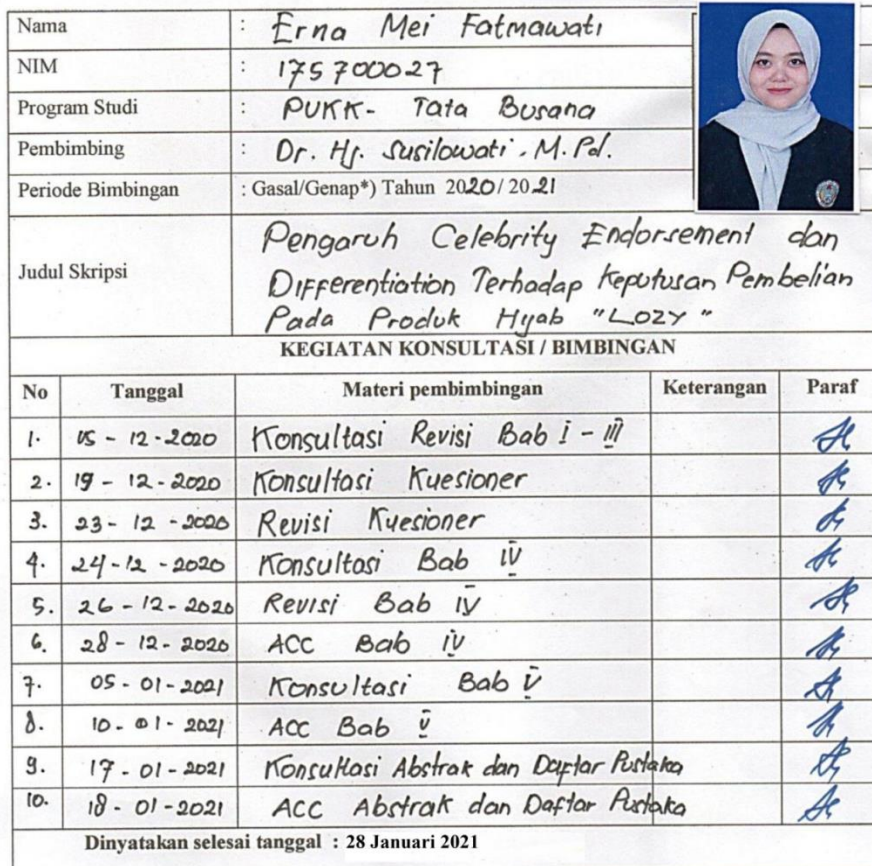 Nama : Erna Mei Fatmawati
NIM : 175700027
Program Studi : PVKK - Tata Busana
Pembimbing : Dr. Hj. Susilowati, M.Pd.
Periode Bimbingan : Gasal/Genap*) Tahun 2020/2021
Judul Skripsi
Pengaruh Celebrity Endorsement dan
Differentiation Terhadap Keputusan Pembelian
Pada Produk Hijab "LOZY"
KEGIATAN KONSULTASI / BIMBINGAN
No Tanggal Materi pembimbingan Keterangan Paraf
1. 05 - 12 - 2020 Konsultasi Revisi Bab I - III
2. 19 - 12 - 2020 Konsultasi Kuesioner
3. 23 - 12 - 2020 Revisi Kuesioner
4. 24 - 12 - 2020 Konsultasi Bab IV
5. 26 - 12 - 2020 Revisi Bab IV
6. 28 - 12 - 2020 ACC Bab IV
7. 05 - 01 - 2021 Konsultasi Bab V
8. 10 - 01 - 2021 ACC Bab V
9. 17 - 01 - 2021 Konsultasi Abstrak dan Daftar Pustaka
10. 18 - 01 - 2021 ACC Abstrak dan Daftar Pustaka
Dinyatakan selesai tanggal : 28 Januari 2021